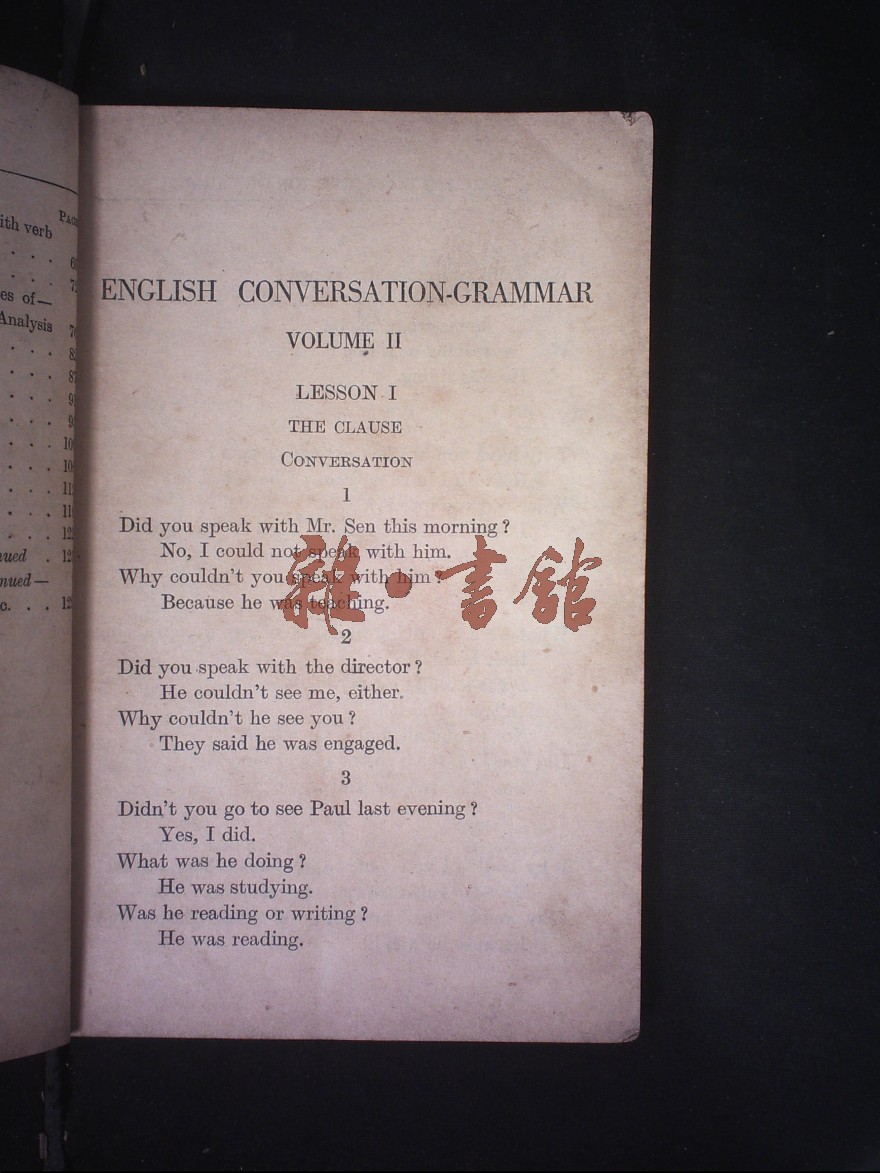 PAGE
ith verb
es of—
Analysis
nued
nued—
c.
ENGLISH CONVERSATION-GRAMMAR
VOLUME II
LESSON I
THE CLAUSE
CONVERSATION
1
Did you speak with Mr. Sen this morning?
No, I could not speak with him.
Why couldn't you speak with him?
Because he was teaching.
2
Did you speak with the director?
He couldn't see me, either.
Why couldn't he see you?
They said he was engaged.
3
Didn't you go to see Paul last evening?
Yes, I did.
What was he doing?
He was studying.
Was he reading or writing?
He was reading.
雜·書館